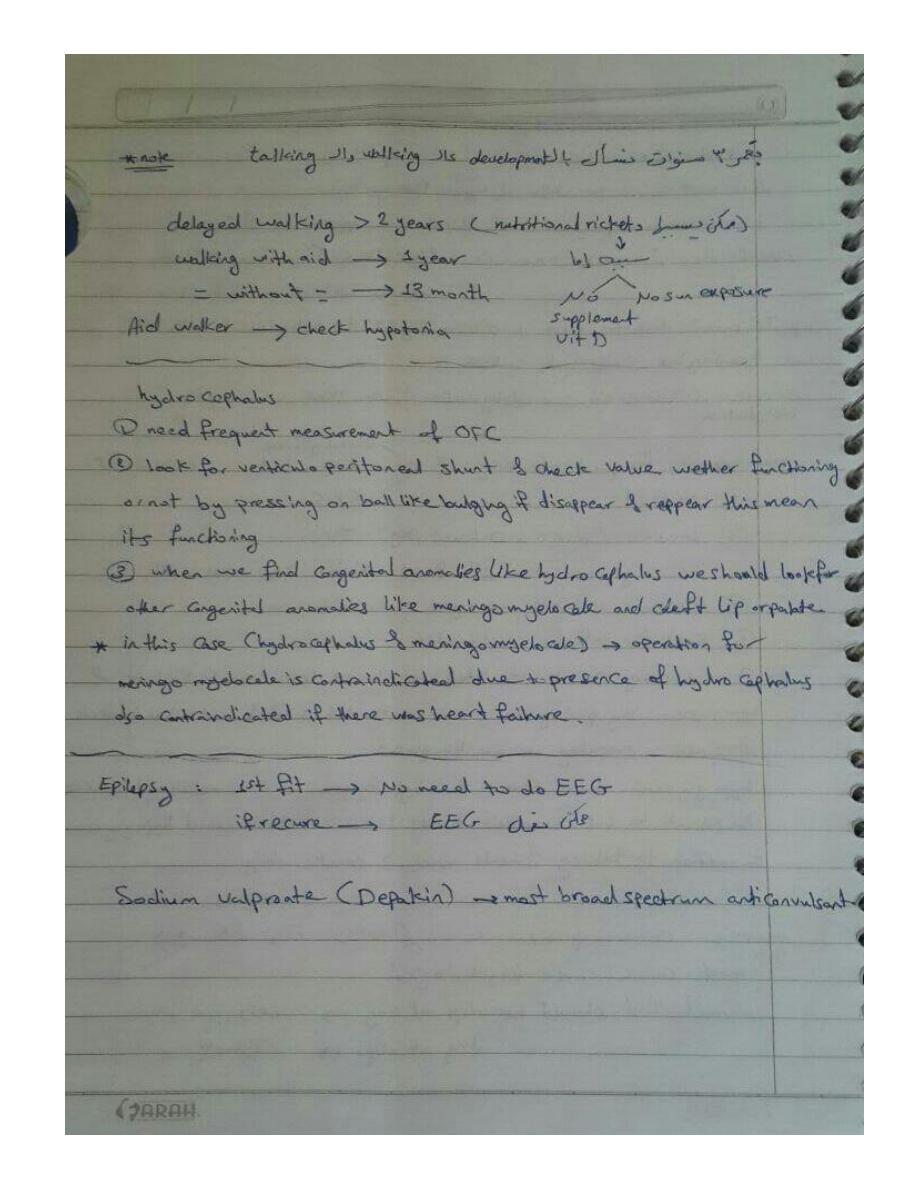 *note بعمر ٣ سنوات نسأل بالـ development عالـ walking والـ talking
delayed walking > 2 years (nutritional rickets ممكن يسبب)
walking with aid → 1 year سببه إما
= without = → 13 month No supplement vit D No sun exposure
Aid walker → check hypotonia
hydro cephalus
① need frequent measurement of OFC
② look for venticulo peritoneal shunt & check value wether functioning
or not by pressing on ball like bulging if disappear & reppear this mean
its functioning
③ when we find congenital anomalies like hydro cephalus we should look for
other congenital anomalies like meningo myelo cele and cleft lip or palate.
* in this case (hydrocephalus & meningomyelo cele) → operation for
meningo myelocele is contraindicated due to presence of hydro cephalus
also contraindicated if there was heart failure.
Epilepsy : 1st fit → No need to do EEG
if recure → EEG ممكن نعمل
Sodium valproate (Depakin) → most broad spectrum anticonvulsant
ARAH